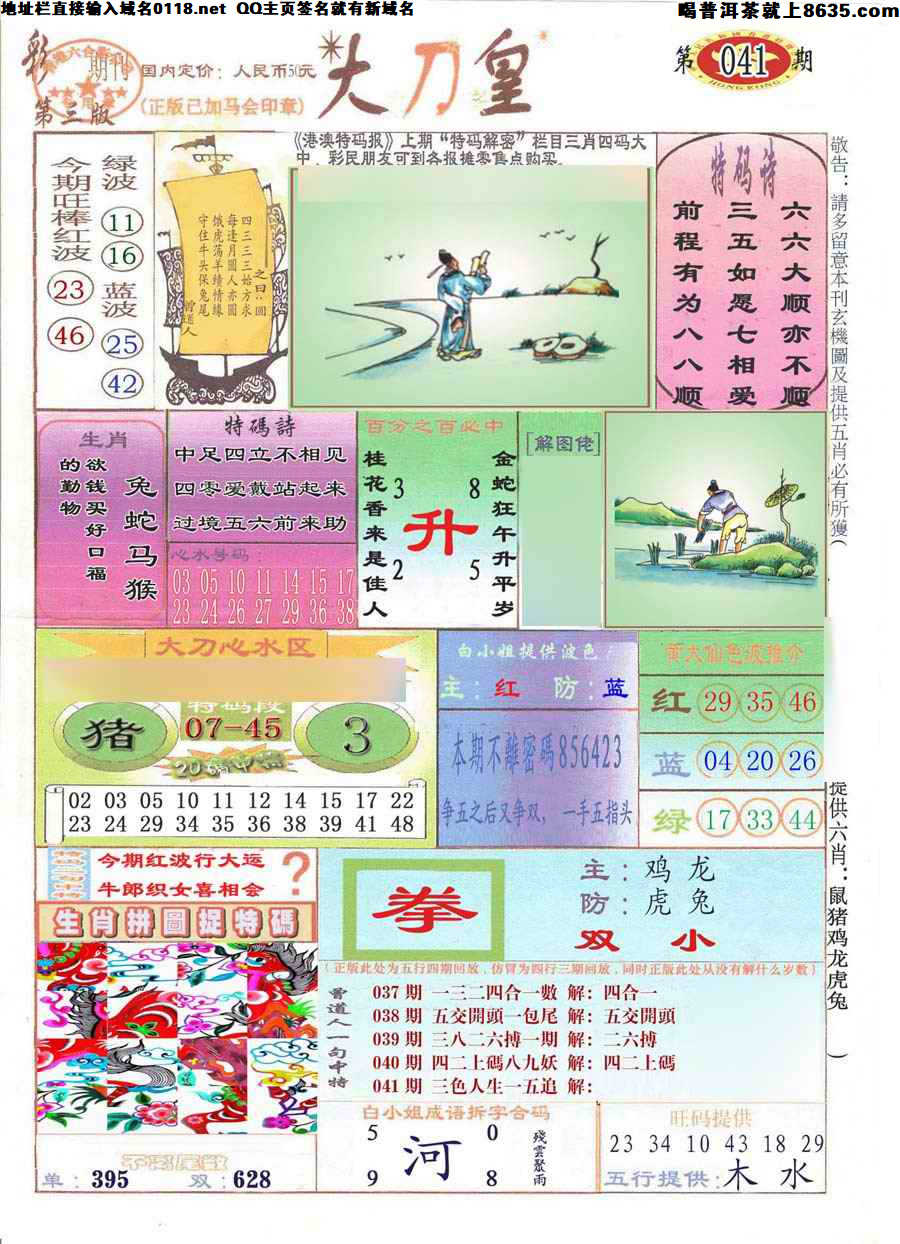 地址栏直接输入域名0118.net QQ主页签名就有新域名
喝普洱茶就上8635.com
彩
期刊
第三版
国内定价：人民币50元
(正版已加马会印章)
大刀皇
第041期
HONG KONG
《港澳特码报》上期“特码解密”栏目三肖四码大
中，彩民朋友可到各报摊零售点购买。
今期旺棒红波
23
46
绿波
11
16
蓝波
25
42
之曰：圆
四三三三始方求
每逢月圆人亦圆
饿虎荡羊续情缘
守住牛头保兔尾
曾道人
特码诗
六六大顺亦不顺
三五如愿七相爱
前程有为八八顺
敬告：請多留意本刊玄機圖及提供五肖必有所獲(
提供六肖：鼠猪鸡龙虎兔
)
生肖
欲钱买好口福
的勤物
兔蛇马猴
特碼詩
中足四立不相见
四零爱戴站起来
过境五六前来助
心水号码：
03 05 10 11 14 15 17
23 24 26 27 29 36 38
百分之百必中
桂花香来是佳人
3 8
升
2 5
金蛇狂午升平岁
[解图佬]
大刀心水区
特码段
猪
07-45
3
20碼中特
02 03 05 10 11 12 14 15 17 22
23 24 29 34 35 36 38 39 41 48
白小姐提供波色
主：红 防：蓝
本期不離密碼856423
争五之后又争双，一手五指头
黄大仙色波推介
红 29 35 46
蓝 04 20 26
绿 17 33 44
今期红波行大运
牛郎织女喜相会
?
生肖拼圖捉特碼
单：395 双：628
拳
主：鸡 龙
防：虎 兔
双 小
(正版此处为五行四期回放，仿冒为四行三期回放，同时正版此处从没有解什么岁数)
曾道人一句中特
037期 一三二四合一數 解：四合一
038期 五交開頭一包尾 解：五交開頭
039期 三八二六搏一期 解：二六搏
040期 四二上碼八九妖 解：四二上碼
041期 三色人生一五追 解：
白小姐成语折字合码
5 0
河
9 8
殘雲聚雨
旺码提供
23 34 10 43 18 29
五行提供：木 水